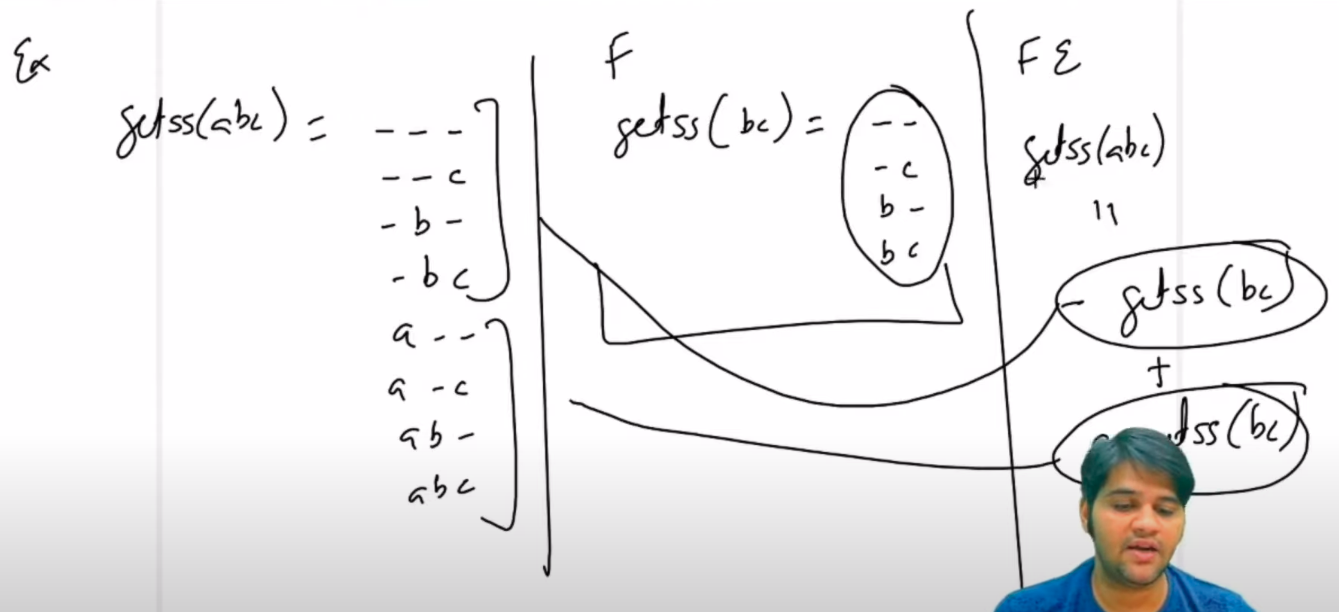 Ex
getss(abc) = - - -
- - c
- b -
- b c
a - -
a - c
a b -
a b c
F
getss(bc) = - -
- c
b -
b c
F E
getss(abc)
=
- getss(bc)
+
ss(bc)